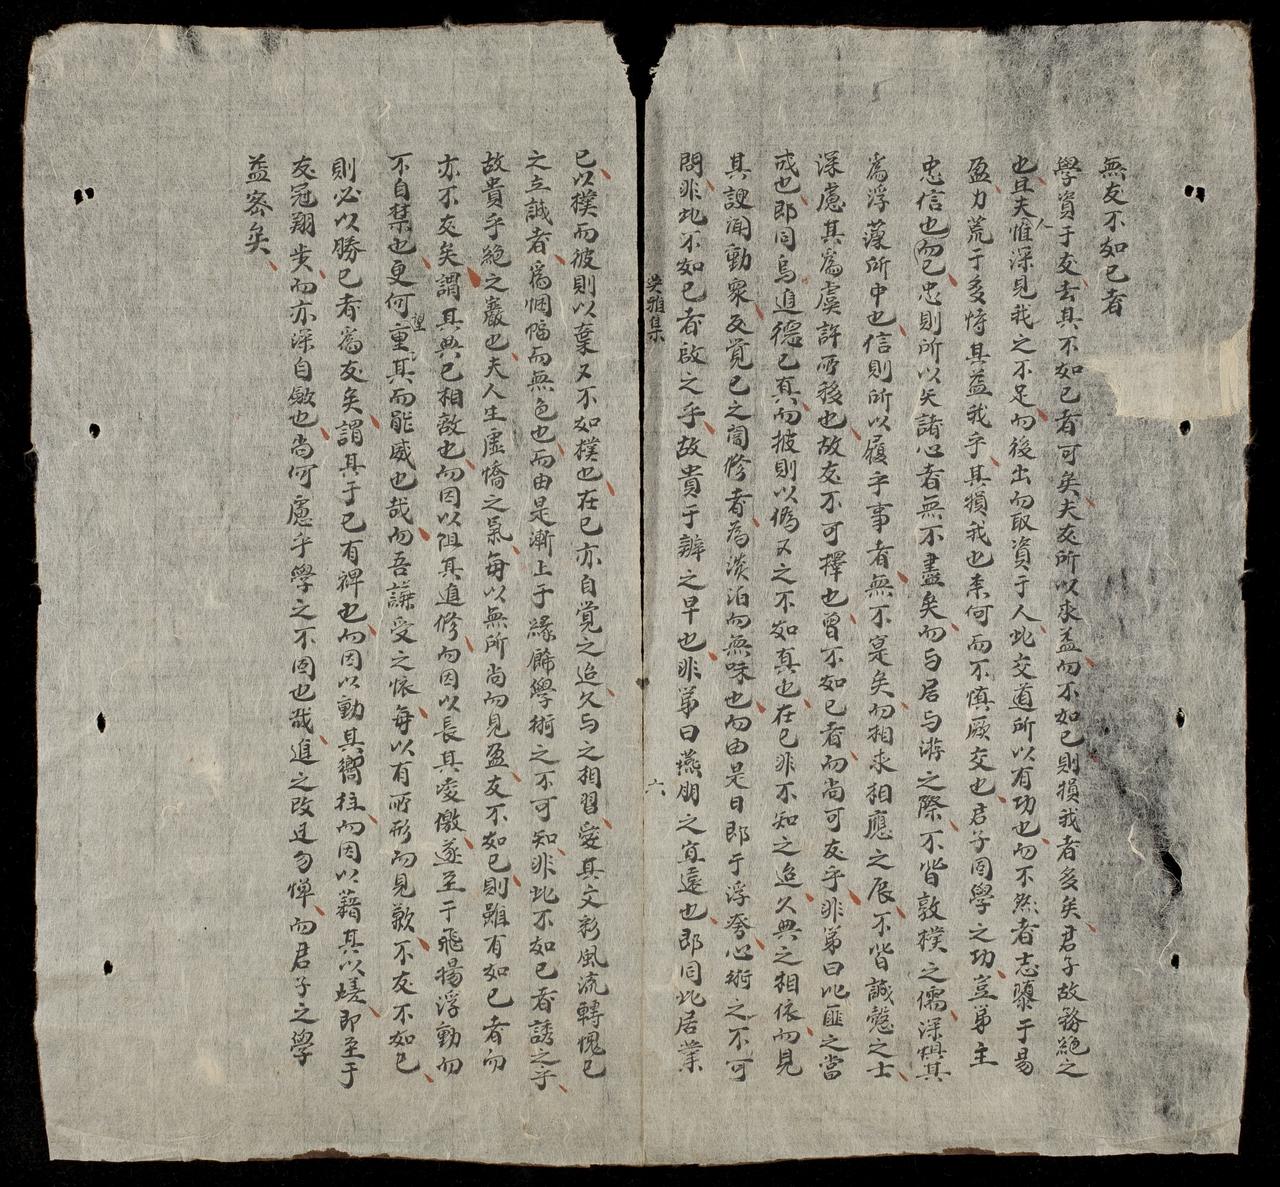 無友不如己者
學資于友去其不如己者可矣夫友所以求益而不如己則損我者多矣君子故務絕之
也且夫人惟深見我之不足而後出而取資于人此交道所以有功也而不然者志驕于易
盈力荒于多恃其益我乎其損我也柰何而不慎厥交也君子固學之功豈第主
忠信也而已忠則所以矢諸心者無不盡矣而与居与游之際不皆敦樸之儒深惧其
為浮薄所中也信則所以履乎事者無不寔矣而相求相應之辰不皆誠慤之士
深慮其為虞詐所移也故友不可擇也曾不如己者而尚可友乎非第曰比匪之當
戒也即同為進德己真而彼則以偽又之不如真也在己非不知之迨久與之相依而見
其謏聞動衆反覚己之闇修者為淡泊而無味也而由是日即于浮夸心術之不可
問非此不如己者啟之乎故貴于辨之早也非第曰燕朋之宜遠也即同此居業
吳雅集
六
己以樸而彼則以華又不如樸也在己亦自覚之迨久与之相習愛其文彩風流轉愧己
之立誠者為悃愊而無色也而由是漸上于緣飾學術之不可知非此不如己者誘之乎
故貴乎絕之嚴也夫人生虛憍之氣每以無所尚而見盈友不如己則雖有如己者而
亦不友矣謂其與己相敵也而因以阻其進修而因以長其凌傲遂至于飛揚浮動而
不自禁也更何望重其而能威也哉而吾謙受之懷每以有所形而見歉不友不如己
則必以勝己者為友矣謂其于己有裨也而因以動其嚮往而因以藉其以嗟即至于
友冠翔步而亦深自斂也尚何慮乎學之不固也哉進之改過勿憚而君子之學
益密矣